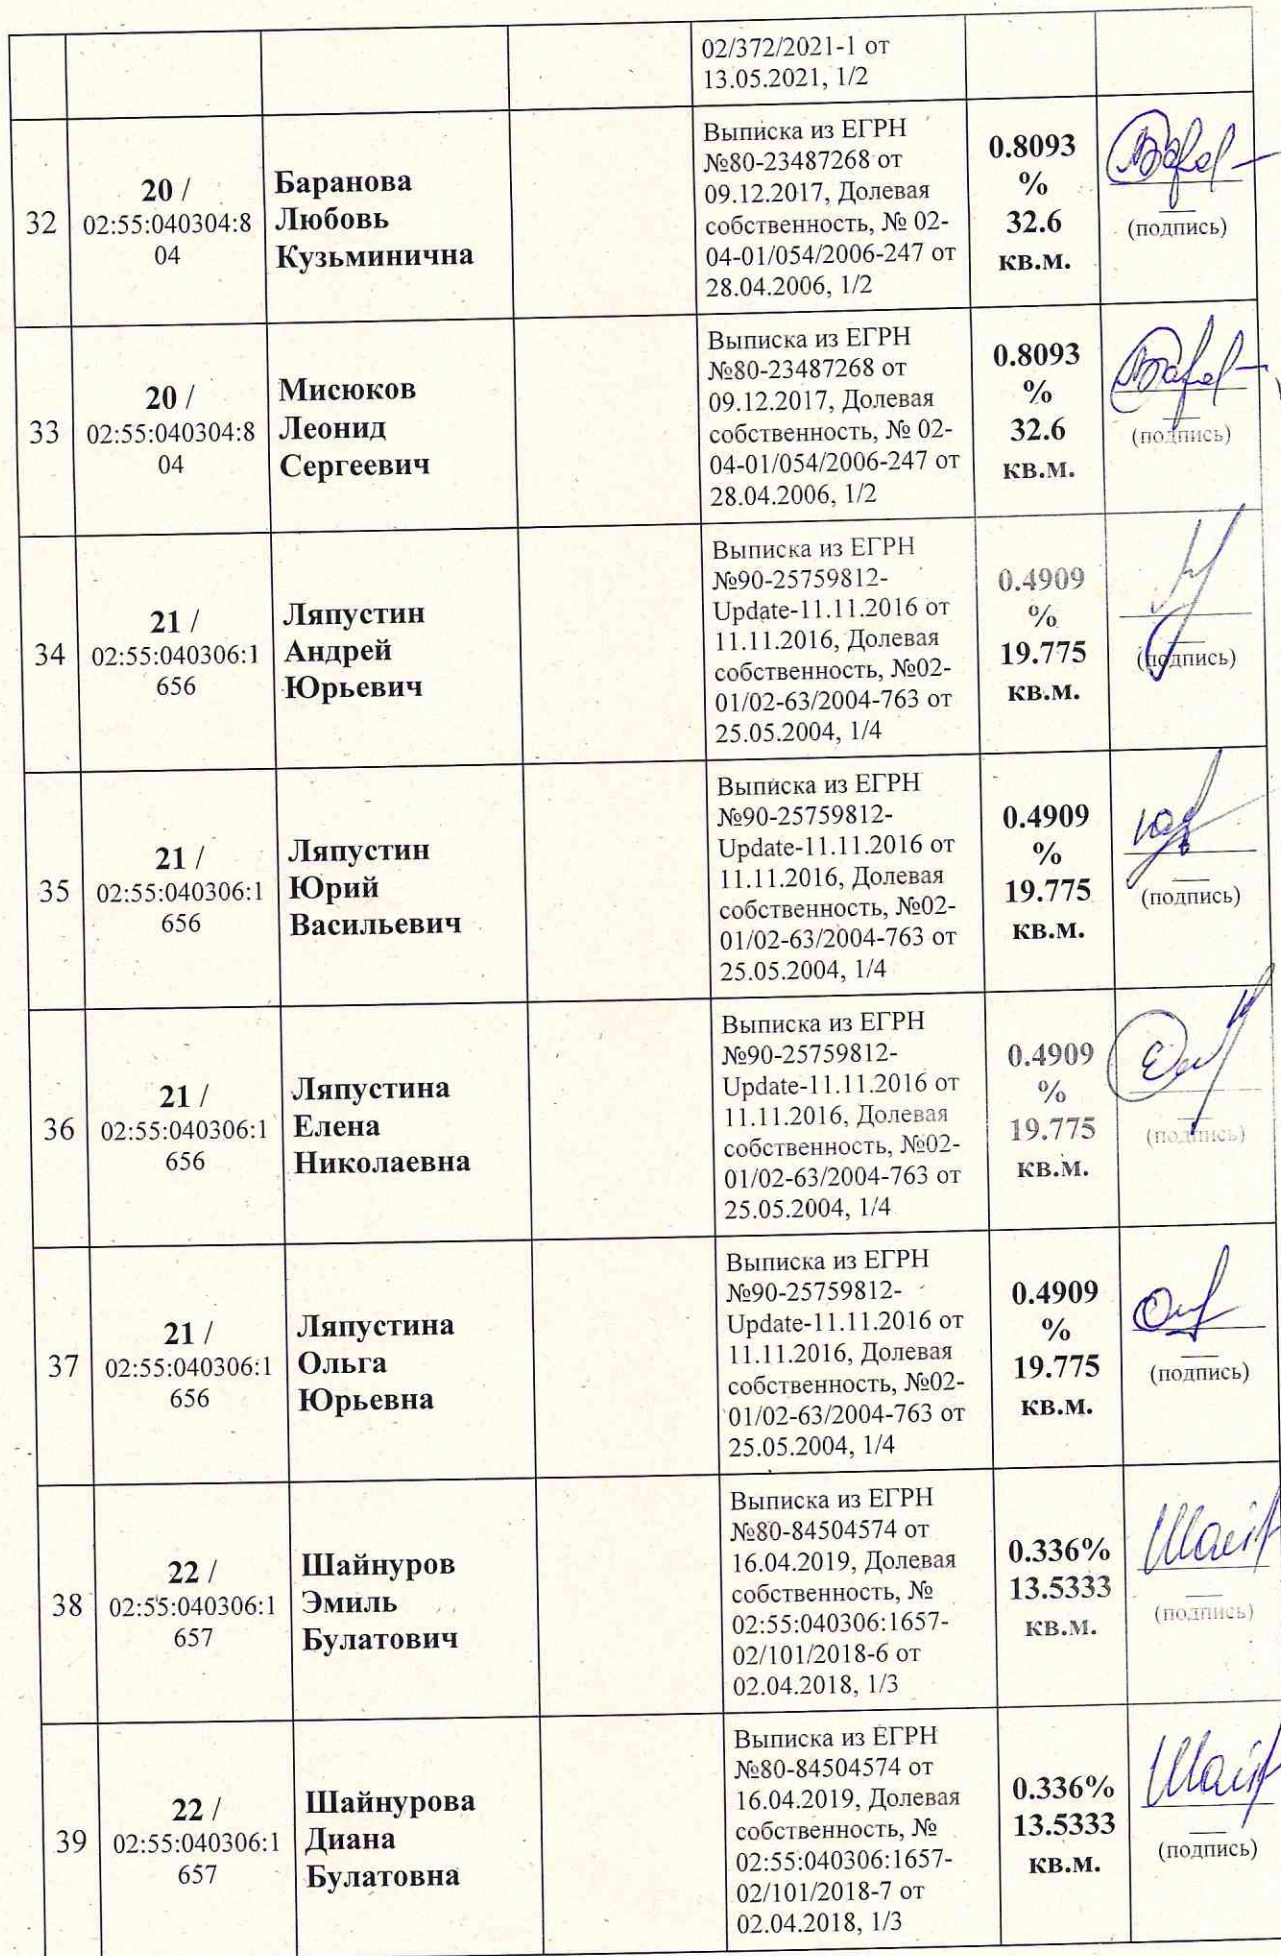 02/372/2021-1 от
13.05.2021, 1/2
32
20 /
02:55:040304:8
04
Баранова
Любовь
Кузьминична
Выписка из ЕГРН
№80-23487268 от
09.12.2017, Долевая
собственность, № 02-
04-01/054/2006-247 от
28.04.2006, 1/2
0.8093
%
32.6
кв.м.
(подпись)
33
20 /
02:55:040304:8
04
Мисюков
Леонид
Сергеевич
Выписка из ЕГРН
№80-23487268 от
09.12.2017, Долевая
собственность, № 02-
04-01/054/2006-247 от
28.04.2006, 1/2
0.8093
%
32.6
кв.м.
(подпись)
34
21 /
02:55:040306:1
656
Ляпустин
Андрей
Юрьевич
Выписка из ЕГРН
№90-25759812-
Update-11.11.2016 от
11.11.2016, Долевая
собственность, №02-
01/02-63/2004-763 от
25.05.2004, 1/4
0.4909
%
19.775
кв.м.
(подпись)
35
21 /
02:55:040306:1
656
Ляпустин
Юрий
Васильевич
Выписка из ЕГРН
№90-25759812-
Update-11.11.2016 от
11.11.2016, Долевая
собственность, №02-
01/02-63/2004-763 от
25.05.2004, 1/4
0.4909
%
19.775
кв.м.
(подпись)
36
21 /
02:55:040306:1
656
Ляпустина
Елена
Николаевна
Выписка из ЕГРН
№90-25759812-
Update-11.11.2016 от
11.11.2016, Долевая
собственность, №02-
01/02-63/2004-763 от
25.05.2004, 1/4
0.4909
%
19.775
кв.м.
(подпись)
37
21 /
02:55:040306:1
656
Ляпустина
Ольга
Юрьевна
Выписка из ЕГРН
№90-25759812-
Update-11.11.2016 от
11.11.2016, Долевая
собственность, №02-
01/02-63/2004-763 от
25.05.2004, 1/4
0.4909
%
19.775
кв.м.
(подпись)
38
22 /
02:55:040306:1
657
Шайнуров
Эмиль
Булатович
Выписка из ЕГРН
№80-84504574 от
16.04.2019, Долевая
собственность, №
02:55:040306:1657-
02/101/2018-6 от
02.04.2018, 1/3
0.336%
13.5333
кв.м.
(подпись)
39
22 /
02:55:040306:1
657
Шайнурова
Диана
Булатовна
Выписка из ЕГРН
№80-84504574 от
16.04.2019, Долевая
собственность, №
02:55:040306:1657-
02/101/2018-7 от
02.04.2018, 1/3
0.336%
13.5333
кв.м.
(подпись)